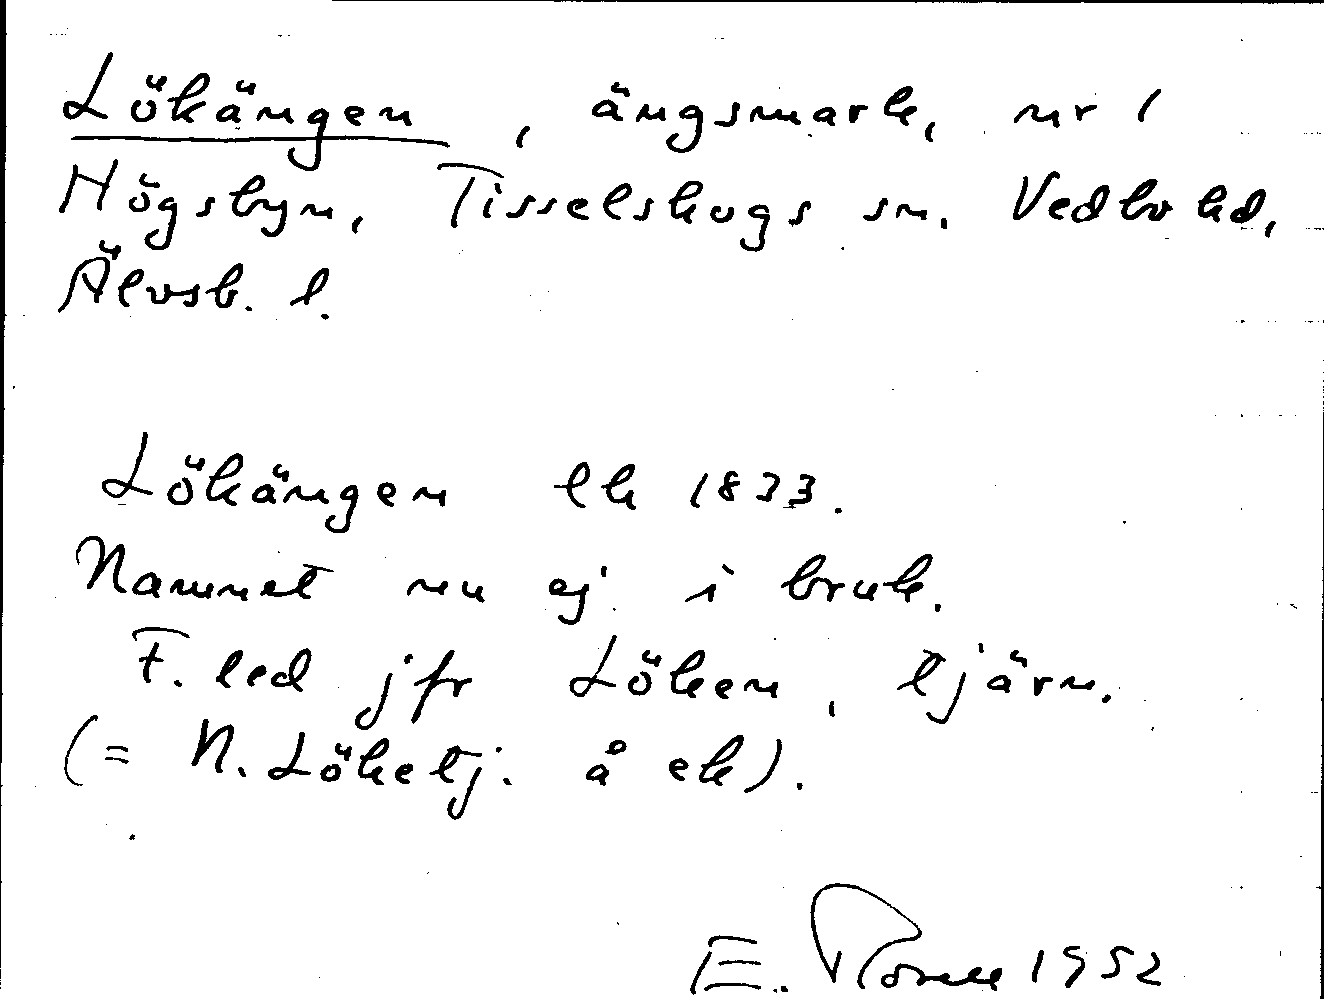 Lökängen, ängsmark, nr 1
Högsbyn, Tisselskogs sn. Vedbo hd,
Älvsb. l.
Lökängen lk 1833.
Namnet nu ej i bruk.
F. led jfr Löken, tjärn.
(= N. Löketj. å ek).
E. 1952